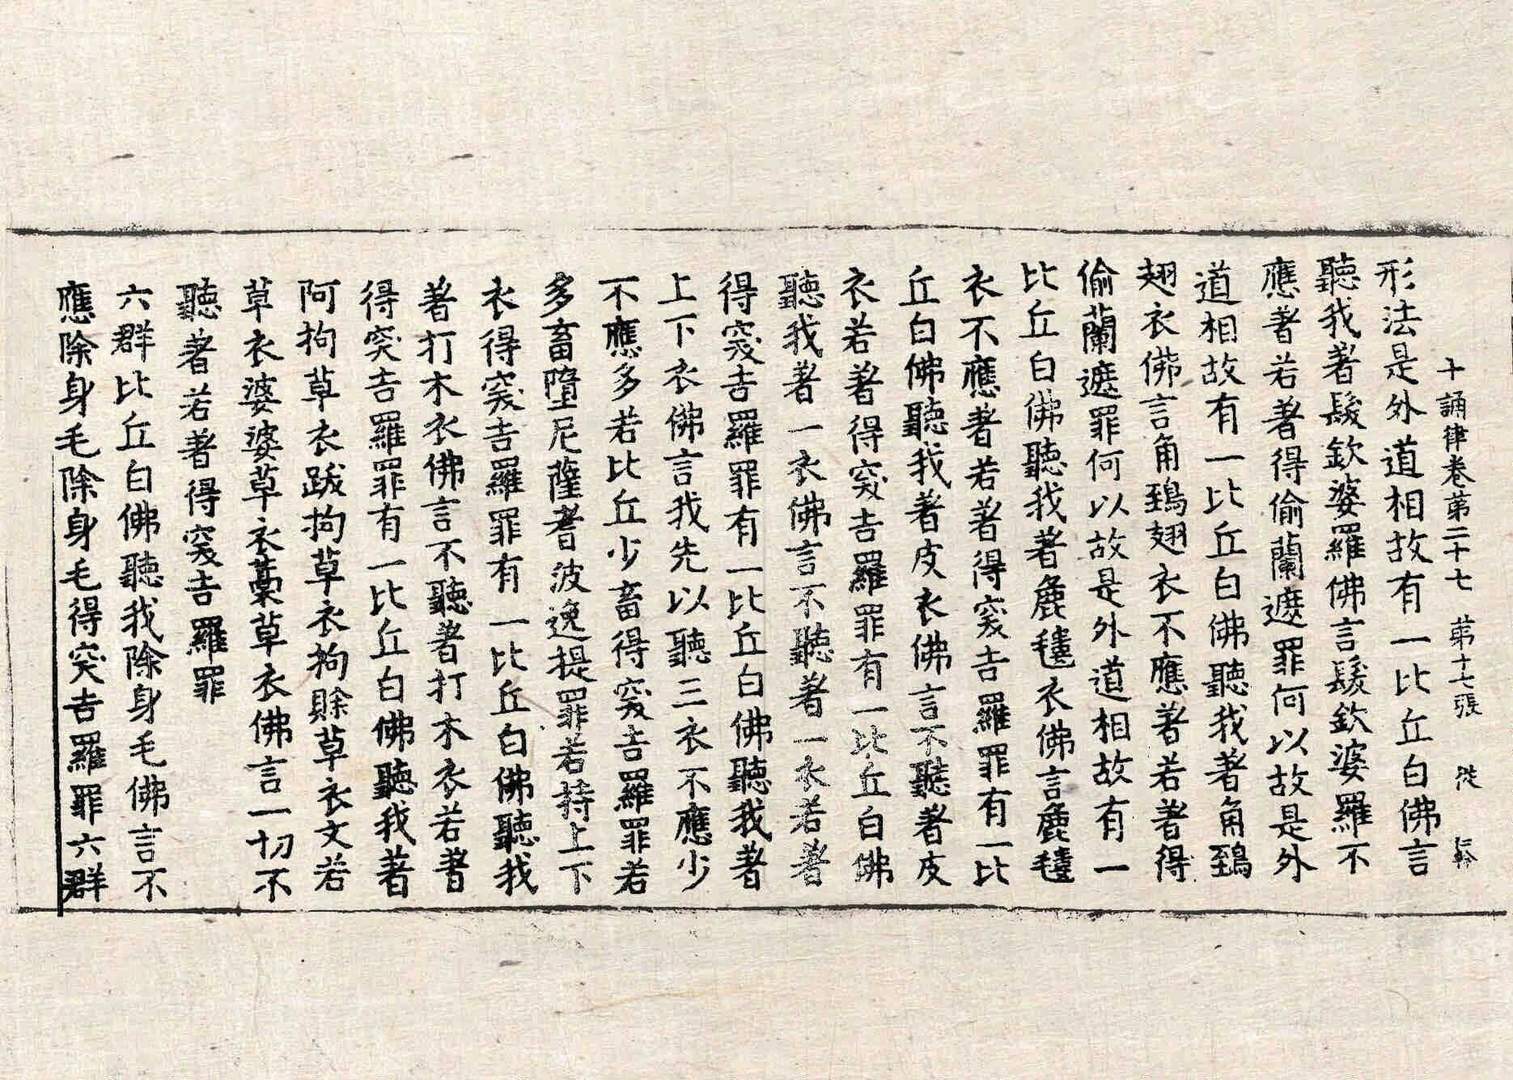 十誦律卷第二十七 第十七張 從
形法是外道相故有一比丘白佛言
聽我著髮欽婆羅佛言髮欽婆羅不
應著若著得偷蘭遮罪何以故是外
道相故有一比丘白佛聽我著角鵄
翅衣佛言角鵄翅衣不應著若著得
偷蘭遮罪何以故是外道相故有一
比丘白佛聽我著麁𣯾衣佛言麁𣯾
衣不應著若著得突吉羅罪有一比
丘白佛聽我著皮衣佛言不聽著皮
衣若著得突吉羅罪有一比丘白佛
聽我著一衣佛言不聽著一衣若著
得突吉羅罪有一比丘白佛聽我著
上下衣佛言我先以聽三衣不應少
不應多若比丘少畜得突吉羅罪若
多畜墮尼薩耆波逸提罪若持上下
衣得突吉羅罪有一比丘白佛聽我
著打木衣佛言不聽著打木衣若著
得突吉羅罪有一比丘白佛聽我著
阿拘草衣跋拘草衣拘賒草衣文若
草衣婆婆草衣藁草衣佛言一切不
聽著若著得突吉羅罪
六群比丘白佛聽我除身毛佛言不
應除身毛除身毛得突吉羅罪六群